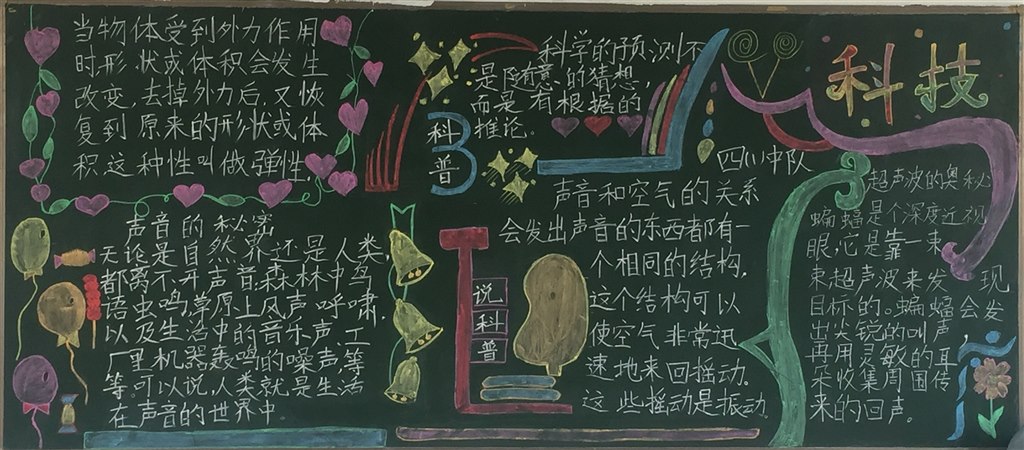 科技
当物体受到外力作用
时形状或体积会发生
改变,去掉外力后,又恢
复到原来的形状或体
积这种性叫做弹性
科普
科学的预测不
是随意的猜想
而是有根据的
推论。
四(1)中队
声音的秘密
无论是自然界还是人类,
都离不开声音.森林中鸟
语虫鸣,草原上风声呼啸.
以及生活中的音乐声、工
厂里机器轰鸣的噪声,等
等.可以说,人类就是生活
在声音的世界中
说科普
声音和空气的关系
会发出声音的东西都有一
个相同的结构,
这个结构可以
使空气非常迅
速地来回摇动.
这些摇动是振动.
超声波的奥秘
蝙蝠是个深度近视
眼,心是靠一来
束超声波来发现
目标的。蝙蝠会发
出尖锐的叫声
再用灵敏的耳
朵收集周围传
来的回声。